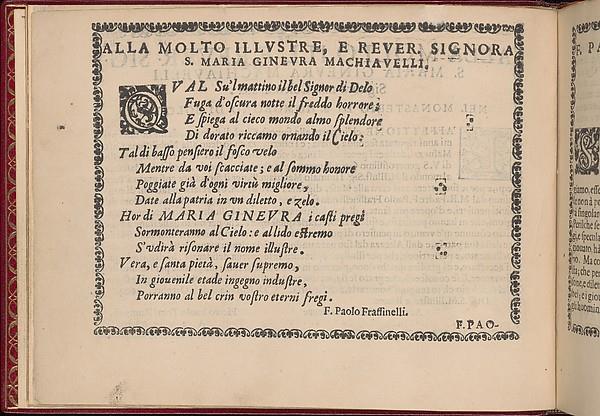 ALLA MOLTO ILLVSTRE, E REVER. SIGNORA
S. MARIA GINEVRA MACHIAVELLI.
QVAL Su'l mattino il bel Signor di Delo
Fuga d'oscura notte il freddo horrore;
E spiega al cieco mondo almo splendore
Di dorato riccamo ornando il Cielo:
Tal di basso pensiero il fosco velo
Mentre da voi scacciate; e al sommo honore
Poggiate già d'ogni virtù migliore,
Date alla patria in vn diletto, e zelo.
Hor di MARIA GINEVRA i casti pregi
Sormonteranno al Cielo: e al lido estremo
S'vdirà risonare il nome illustre.
Vera, e santa pietà, sauer supremo,
In giouenile etade ingegno industre,
Porranno al bel crin vostro eterni fregi.
F. Paolo Fraffinelli.
F. PAO-
F. PA